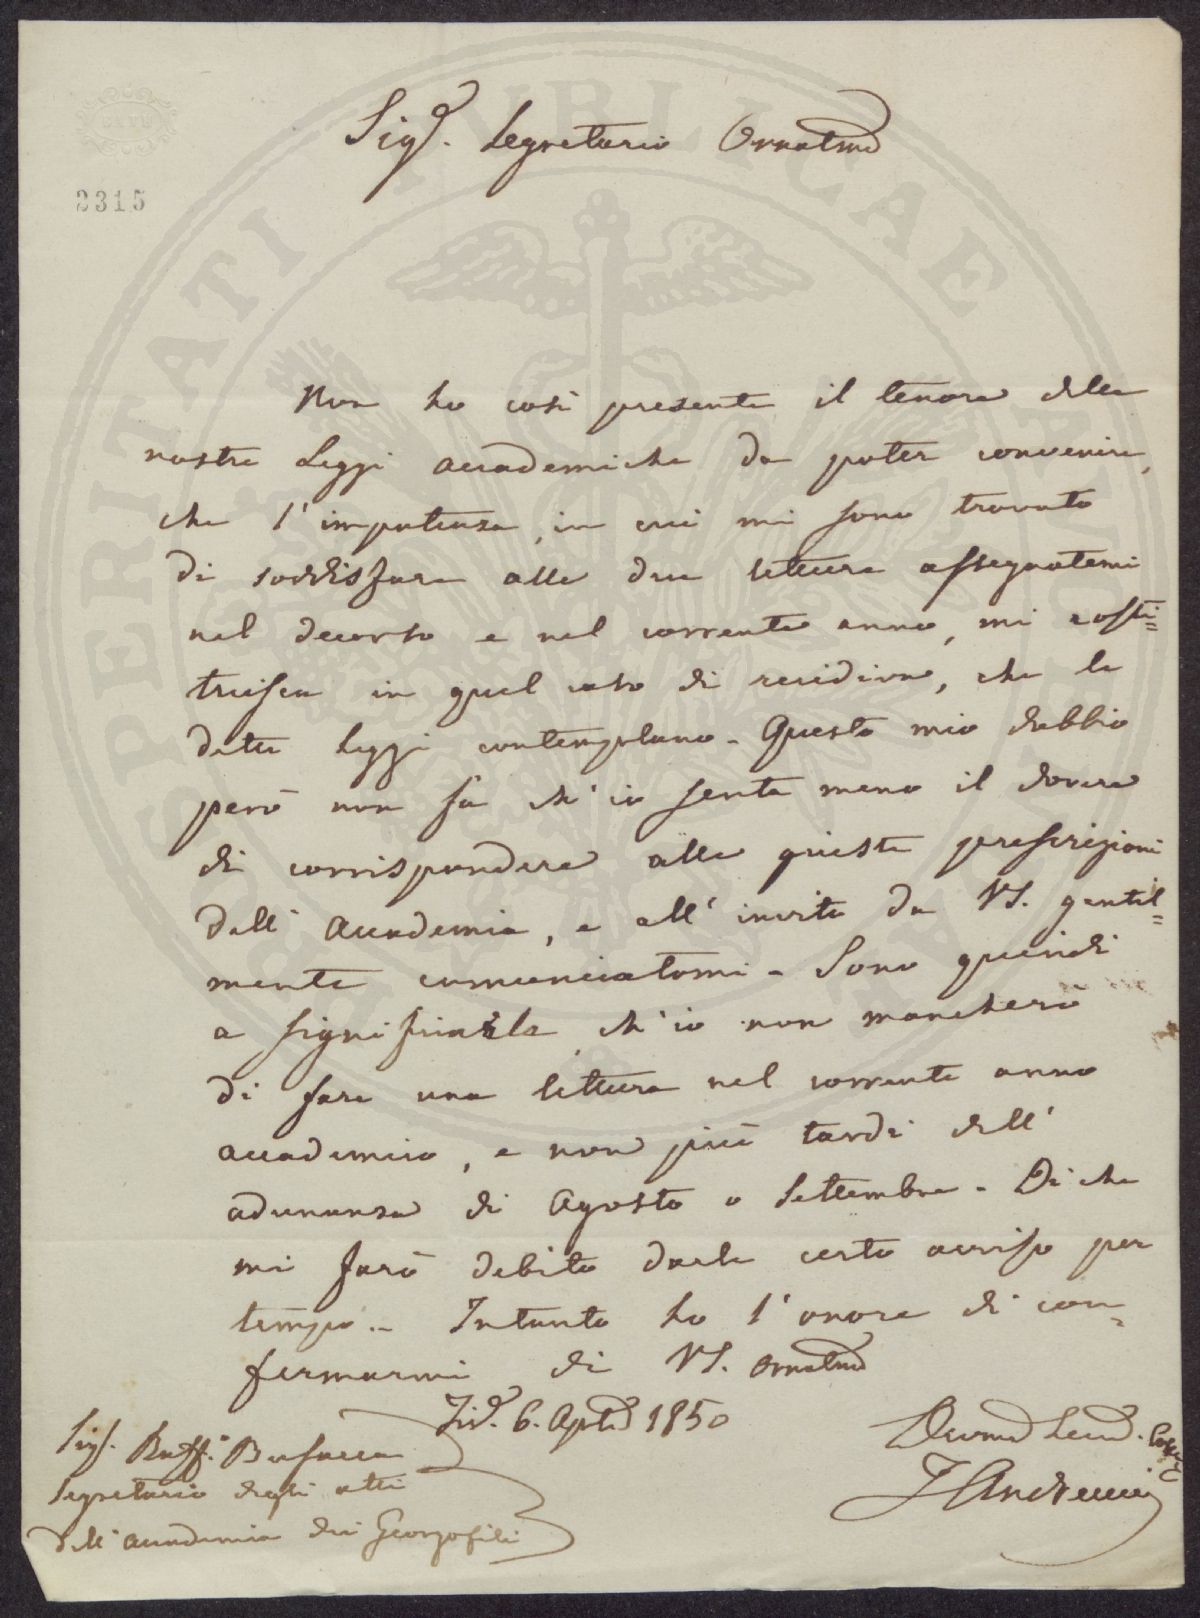 Sig.r Segretario Ornat.mo
2315
Non ho così presente il tenore delle
nostre Leggi accademiche da poter convenire,
che l'impotenza, in cui mi sono trovato
di soddisfare alle due letture assegnatemi
nel decorso e nel corrente anno, mi costi=
tuisca in quel caso di recidiva, che le
dette Leggi contemplano. Questo mio dubbio
però non fa ch'io senta meno il dovere
di corrispondere alle giuste prescrizioni
dell'Accademia, e all'invito da VS. gentil=
mente comunicatomi. Sono quindi
a significarle ch'io non mancherò
di fare una lettura nel corrente anno
accademico, e non più tardi dell'
adunanza di Agosto o Settembre. Di che
mi farò debito darle certo avviso per
tempo. Intanto ho l'onore di con=
fermarmi di VS. Ornat.ma
6. Aprile 1850
Sig. Raff.o Busacca
Segretario degli atti
dell'accademia dei Georgofili
Devmo Servo
F Andreucci